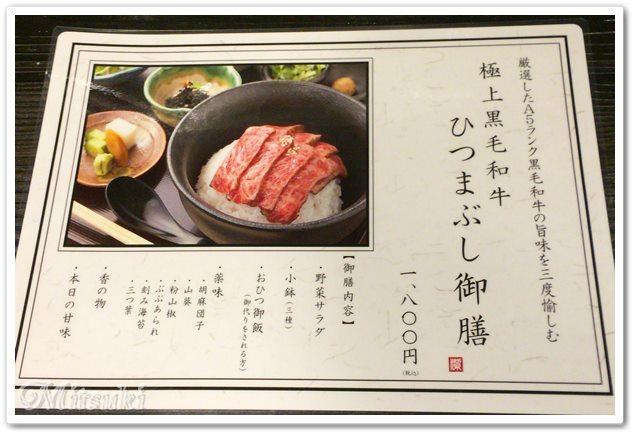 厳選したA5ランク黒毛和牛の旨味を三度愉しむ
極上黒毛和牛
ひつまぶし御膳
一、八〇〇円(税込)
【御膳内容】
・野菜サラダ
・小鉢(三種)
・おひつ御飯
(御代りをされる方)
・薬味
・胡麻団子
・山葵
・粉山椒
・ぶぶあられ
・刻み海苔
・三つ葉
・香の物
・本日の甘味
Mitsuki